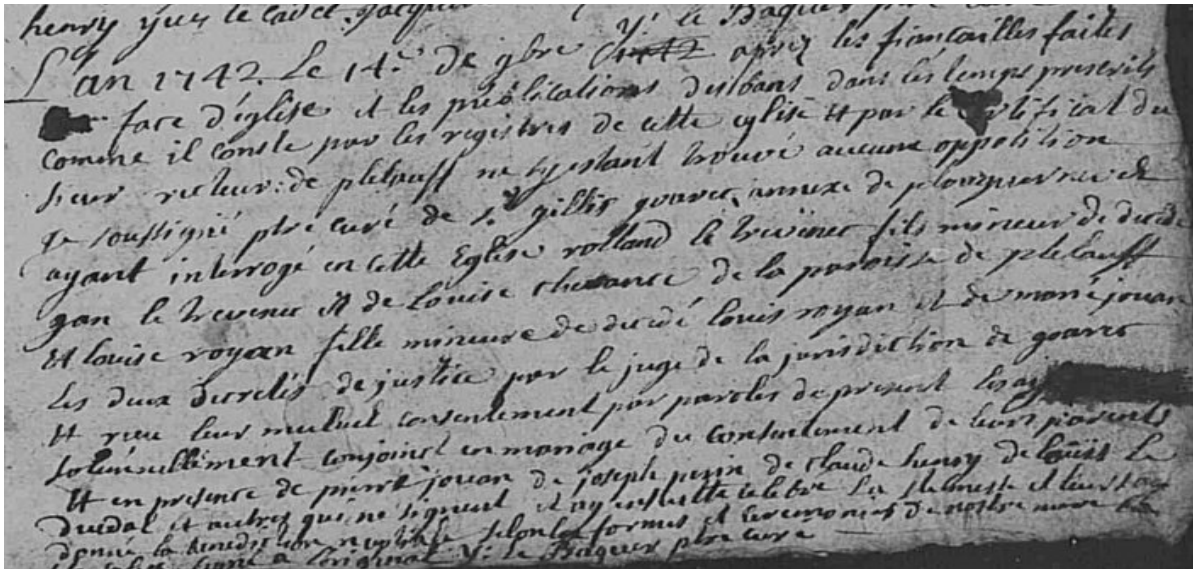 henry yves le cadet. jacques y: le Baquer
L'an 1742. Le 14.e de 9bre aprez les fiancailles faites
face d'église et les publications des bans dans les temps prescrits
comme il conste par les registres de cette eglise et par le certificat du
sieur recteur: de plelauff ne s'y estant trouvé aucune opposition
je soussigné ptre curé de st gilles gouarec, annexe de plouguernevel
ayant interrogé en cette Eglise rolland le trevenec fils mineur de decede
gan le trevenec et de Louise de la paroisse de plelauff
et louise royan fille mineure de decedé louis royan et de marie jouan
les deux decretés de justice par le juge de la jurisdiction de gouarec
et receu leur mutuel consentement par paroles de present les ay
solennellement conjoinct en mariage du consentement de leurs parents
et en presence de pierre jouan de joseph perin de claude henry de louis le
duedal et autres qui ne signent et ay ensuitte celebré la ste messe et leurs ay
donné la benediction nuptiale selon les formes et ceremonies de nostre mere
signé à l'original Y: le Baquer ptre curé